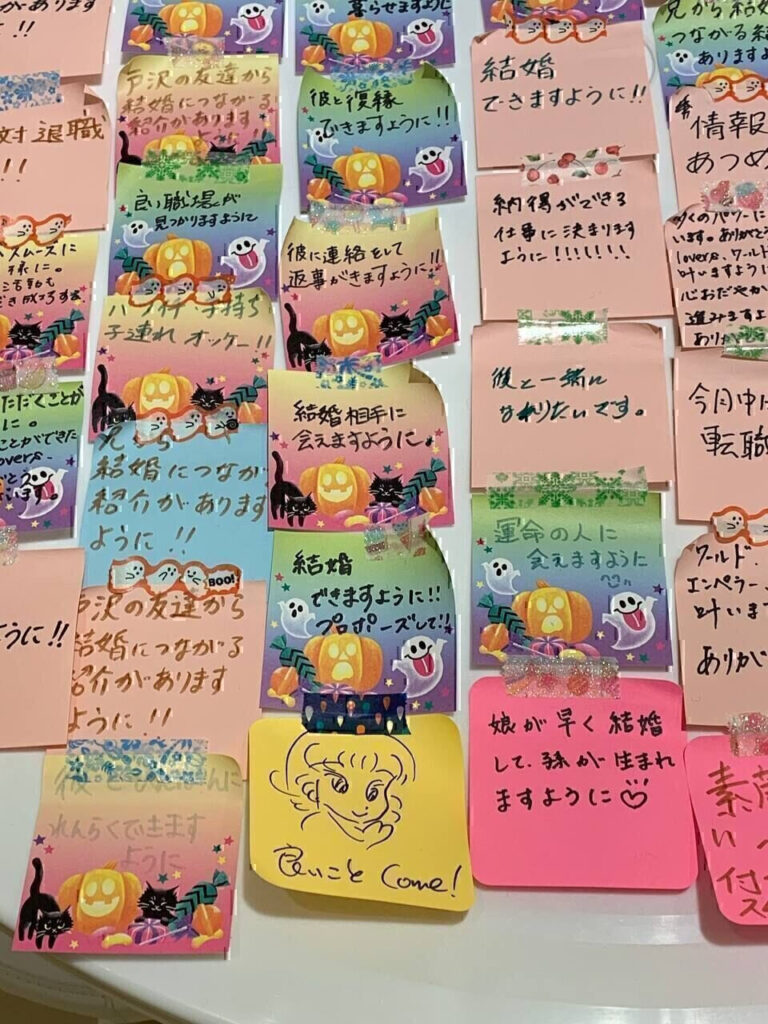 がありますように
!!
暮らせますように
見から結婚
つながる紹
ありますように
結婚
できますように!!
戸沢の友達から
結婚につながる
紹介があります
ように!!
彼と復縁
できますように!!
対退職
!!
情報
あつめ
良い職場が
見つかりますように
納得ができる
仕事に決まります
ように!!!!!!!
彼に連絡をして
返事がきますように!!
スムーズに
様に。
多くのパワーに
います。ありがとう
lovers、ワールド
叶いますように
心おだやか
進みますよ
ありがと
バツイチ・子持ち
子連れ オッケー!!
彼と一緒に
なりたいです。
今月中に
転職
結婚相手に
会えますように。
ただくことが
に。
ことができた
lovers、
います。
兄から
結婚につなが
紹介があります
ように!!
運命の人に
会えますように
結婚
できますように!!
プロポーズして!!
ワールド、
エンペラー、
叶いま
ありが
BOO!
戸沢の友達から
結婚につながる
紹介があります
ように!!
ように!!
娘が早く結婚
して、孫が生まれ
ますように♡
良いこと Come!
れんらくできます
ように
素
い
付
ス